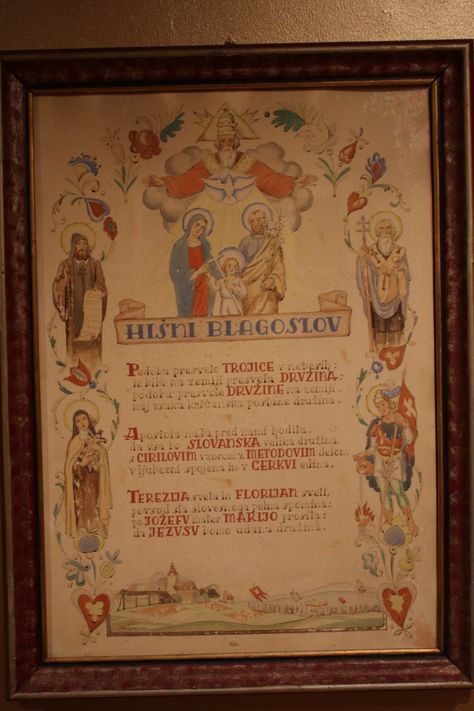 HIŠNI BLAGOSLOV
Podoba presvete TROJICE v nebesih:
je bila na zemlji presveta DRUŽINA:
podoba presvete DRUŽINE na zemlji
naj vsaka krščanska postane družina.
Apostola naša pred nami hodita,
da vsa bo SLOVANSKA velika družina
s CIRILOVIM vzorom z METODOVIM delom
v ljubezni spojena in v CERKVI edina.
TEREZIJA sveta in FLORIJAN sveti,
povsod sta slovesnega polna spomina:
po JOŽEFU mater MARIJO prosita:
da JEZUSU bomo udana družina.